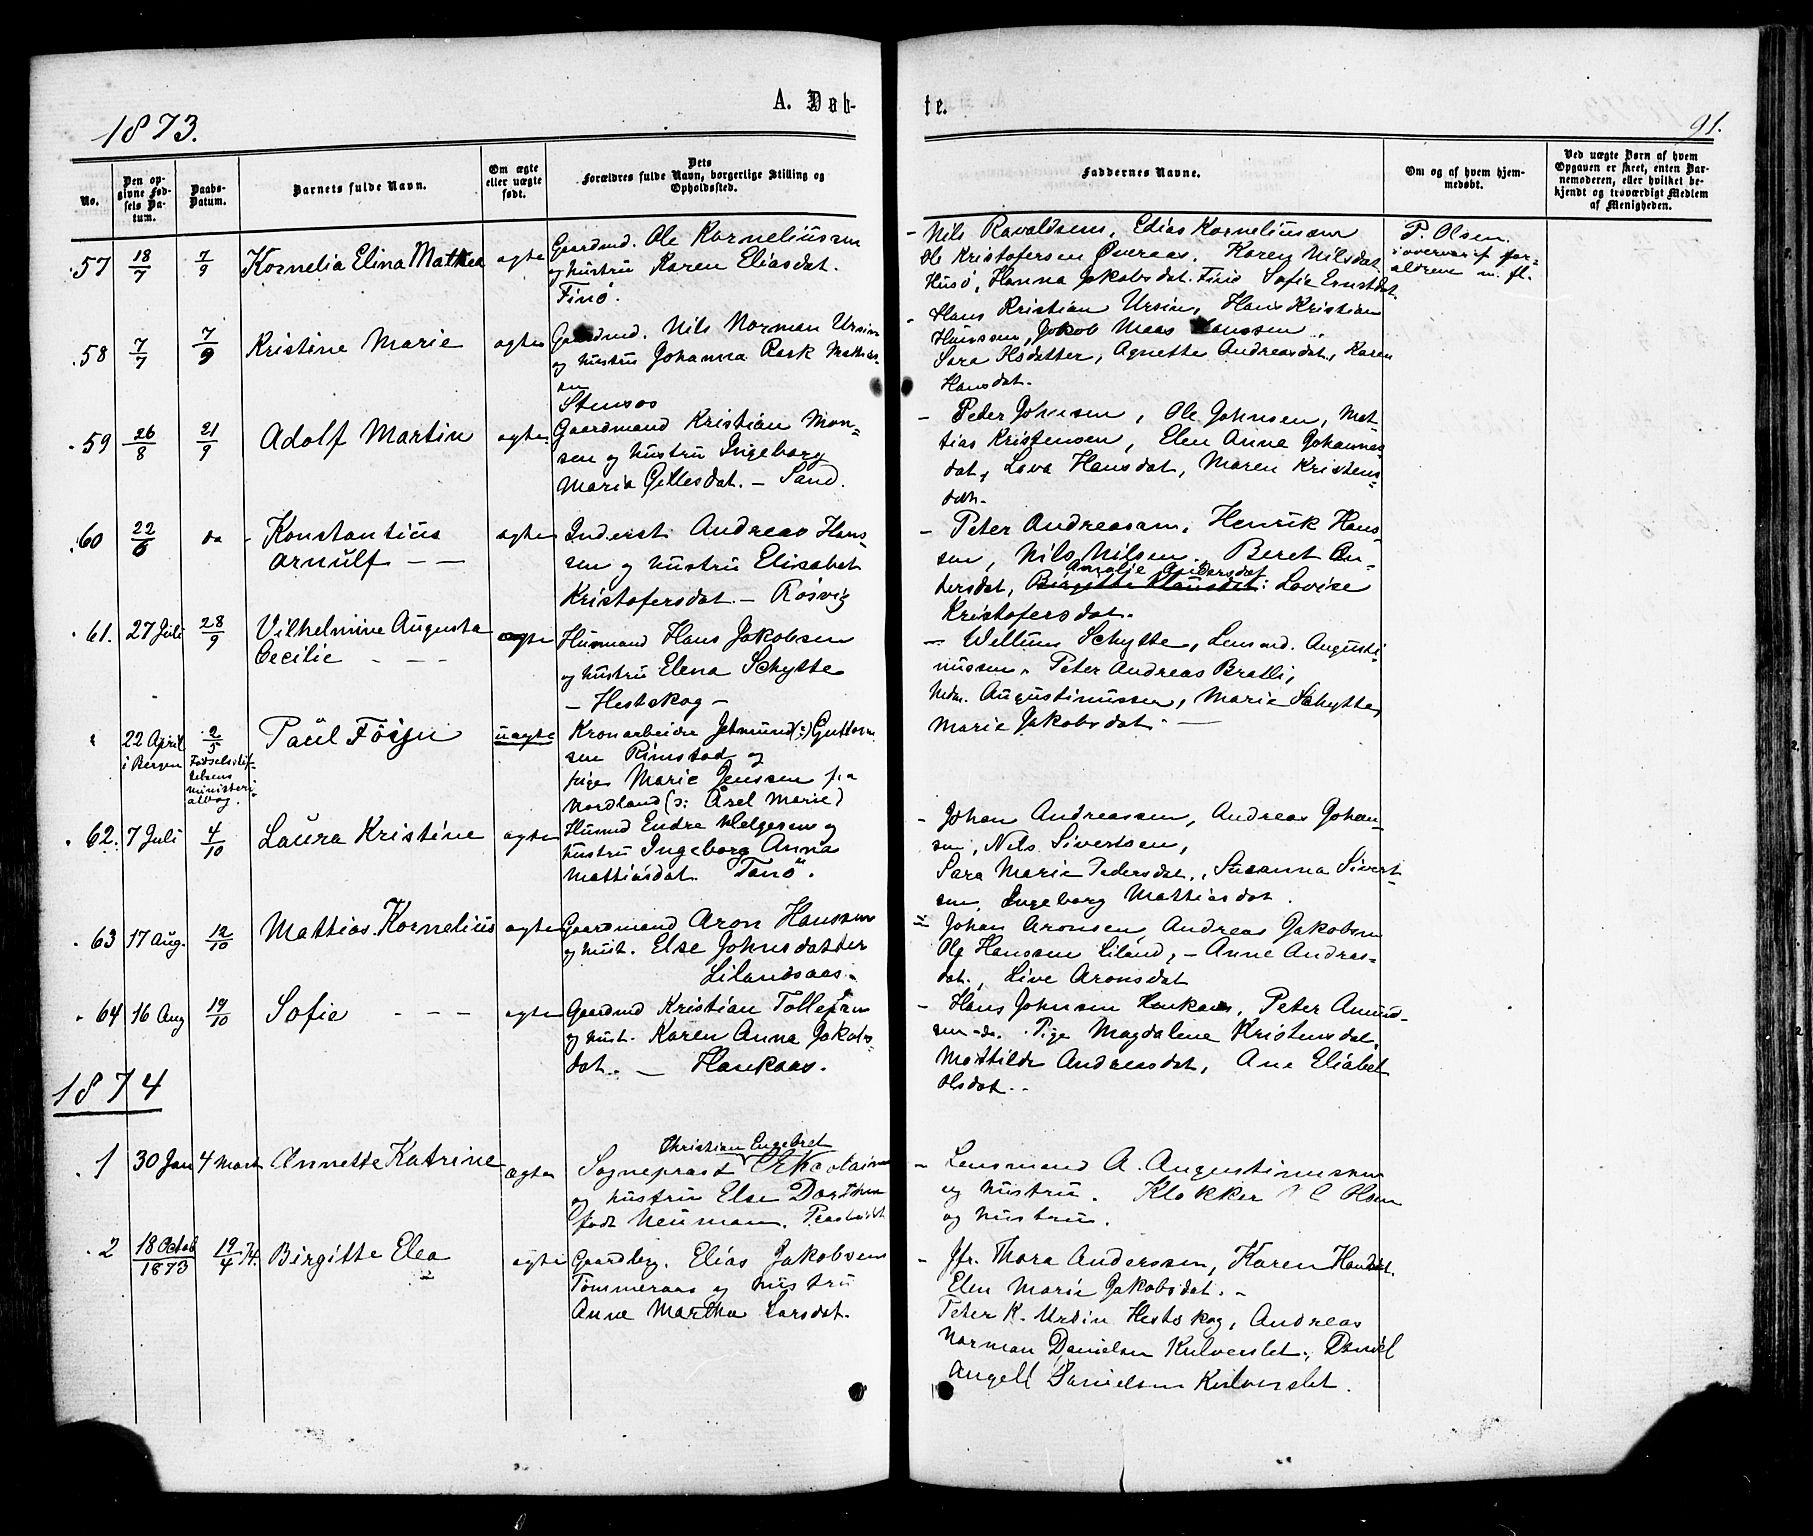 A. Døb-
te.
1873.
91.
No.
Den op-
givne Fød-
sels Da-
tum.
Daabs-
Datum.
Barnets fulde Navn.
Om ægte
eller uægte
født.
Dets
Forældres fulde Navn, borgerlige Stilling og
Opholdssted.
Faddernes Navne.
Om og af hvem hjem-
medøbt.
Ved uægte Børn af hvem
Opgaven er skeet, enten Bar-
nemoderen, eller hvilket be-
kjendt og troværdigt Medlem
af Menigheden.
57 18/7 7/9 Kornelia Elina Mathea ægte
Gaardmd. Ole Korneliussen
og hustru Karen Eliasdat.
Finø.
- Nils Ravaldsen, Edias Korneliussen
Ole Kristofersen Øveraas. Karen Nilsdat.
Husø, Hanna Jakobsdat. Finø Sofie Ernstdat.
P. Olsen.
i overvær af for-
ældrene m. fl.
58 7/7 7/9 Kristine Marie ægte
Gaardmd. Nils Norman Ursin
og hustru Johanna Rask Mathis-
en
Stensos
- Hans Kristian Ursin, Hans Kristian
Hanssen, Jakob Maas Hanssen.
Sara Ilsdatter, Agnette Andreasdat, Karen
Hansdat.
59 26/8 21/9 Adolf Martin ægte
Gaardmand Kristian Mon-
sen og hustru Ingeborg
Maria Gillesdat. - Sand.
- Peter Johnsen, Ole Johnsen, Mat-
tias Kristensen, Elen Anna Johannes-
dat, Lova Hansdat, Maren Kristens-
dat.
60 22/6 da - Konstantius
Arnulf - - ægte
Inderst Andreas Hans-
sen og hustru Elisabet
Kristofersdat. - Røsvig
- Peter Andreassen, Henrik Hans-
sen, Nils Nilsen. Beret An-
Amalie Andersdat
dersdat, Birgitte Klausdat: Lovise
Kristofersdat.
61. 27 Juli 28/9 Vilhelmine Augusta
Cecilie - - - ægte
Husmand Hans Jakobsen
og hustru Elena Schytte
- Hestskog -
- Wellum Schytte, Lensmd. Augusti-
nussen, Peter Andreas Bratli,
Mdm. Augustinussen, Marie Schytte,
Marie Jakobsdat. -
22 April
i Bergen 2/5
Fødselsstif-
telsens
ministeri-
albog. Paul Fösjn uægte
Kronarbeider Jetmund (:) Guttorm-
sen Rimstad og
Pige Marie Jenssen fra
Nordland (: Åsel Marie)
62. 7 Juli 4/10 Laura Kristine ægte
Husmd Endre Helgesen og
hustru Ingeborg Anna
Mattiasdat. Tanö.
- Johan Andreassen, Andreas Johan-
sen, Nils Sivertsen,
Sara Marie Pedersdat., Susanna Sivert-
sen, Ingeborg Mattiasdat.
63 17 Aug. 12/10 Mattias Kornelius ægte
Gaardmand Aron Hanssen
og hust. Else Johnsdatter
Lilandsaas.
- Johan Aronsen Andreas Jakobsen
Ole Hanssen Liland, - Anne Andreas-
dat., Live Aronsdat
64 16 Aug 19/10 Sofie - - - ægte
Gaardmd Kristian Tollefsen
og hust. Karen Anna Jakobs-
dat. - Hankaas.
- Hans Johnsen Hankaas, Peter Amund-
sen - ds. Pige Magdalene Kristensdat,
Mattilde Andreasdat, Ane Elisabet
Olsdat..
1874
1 30 Jan 4 Mart Annette Katrine ægte
Christian Engebret
Sogneprest Nicolaisen
og hustru Else Dorthea
født Neuman. Præstgaardet
- Lensmand A. Augustinussen
og hustru. Klokker P C Olsen
og hustru.
2 18 Octob/1873 19/4 74. Birgitte Elea ægte
Gaardbrg. Elias Jakobsen
Tommeraas og hustru
Anne Martha Larsdat.
- Jfr. Thora Anderssen, Karen Hansdat.
Elen Marie Jakobsdat. -
Peter K. Ursin Hestskog, Andreas
Norman Danielsen Kulverslet., Daniel
Angell Danielsen Kulverslet.